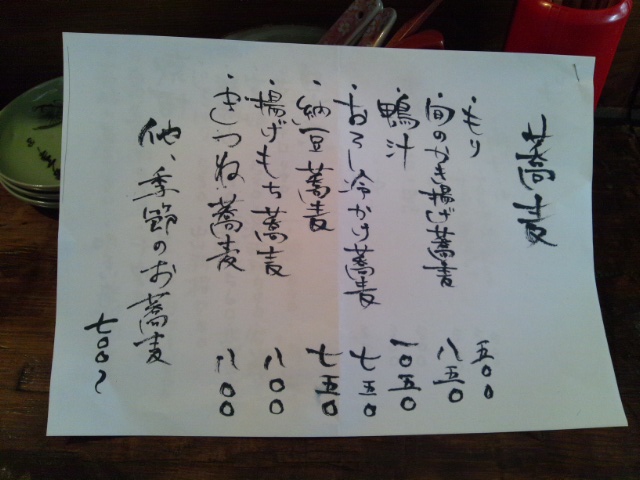 蕎麦
・もり 五〇〇
・旬のかき揚げ蕎麦 八五〇
・鴨汁 一〇五〇
・おろし冷かけ蕎麦 七五〇
・納豆蕎麦 七五〇
・揚げもち蕎麦 八〇〇
・きつね蕎麦 八〇〇
他、季節のお蕎麦
七〇〇〜